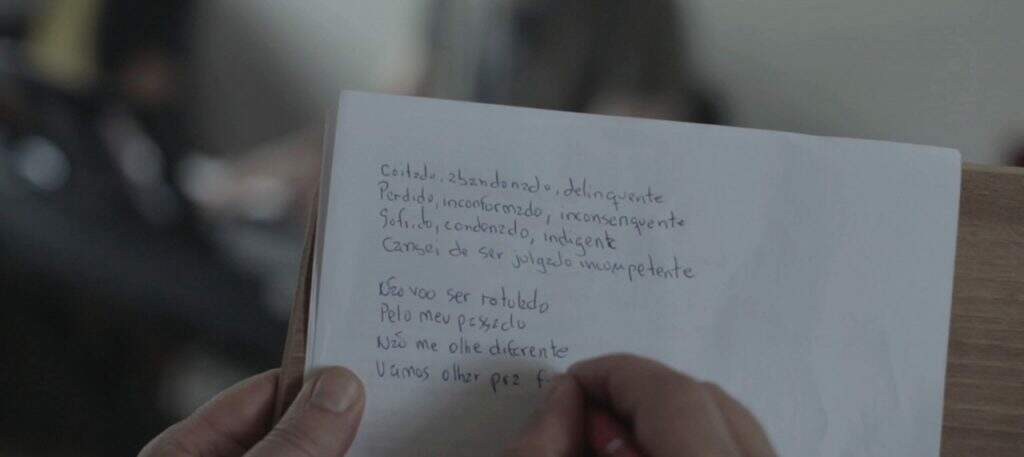 Coitado, abandonado, delinquente
Perdido, inconformado, inconsenquente
Sofrido, condenado, indigente
Cansei de ser julgado incompetente
Não vou ser rotulado
Pelo meu passado
Não me olhe diferente
Vamos olhar pra f